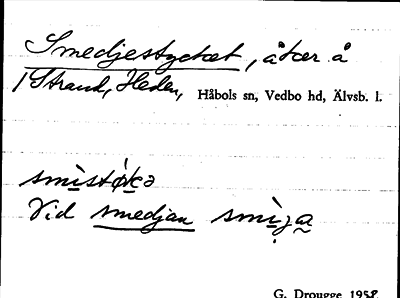 Smedjestycket, åker å
/ Strand, Heden, Håbols sn, Vedbo hd, Älvsb. l.
smìstø̀kə
Vid smedjan smìja
G. Drougge 1958.